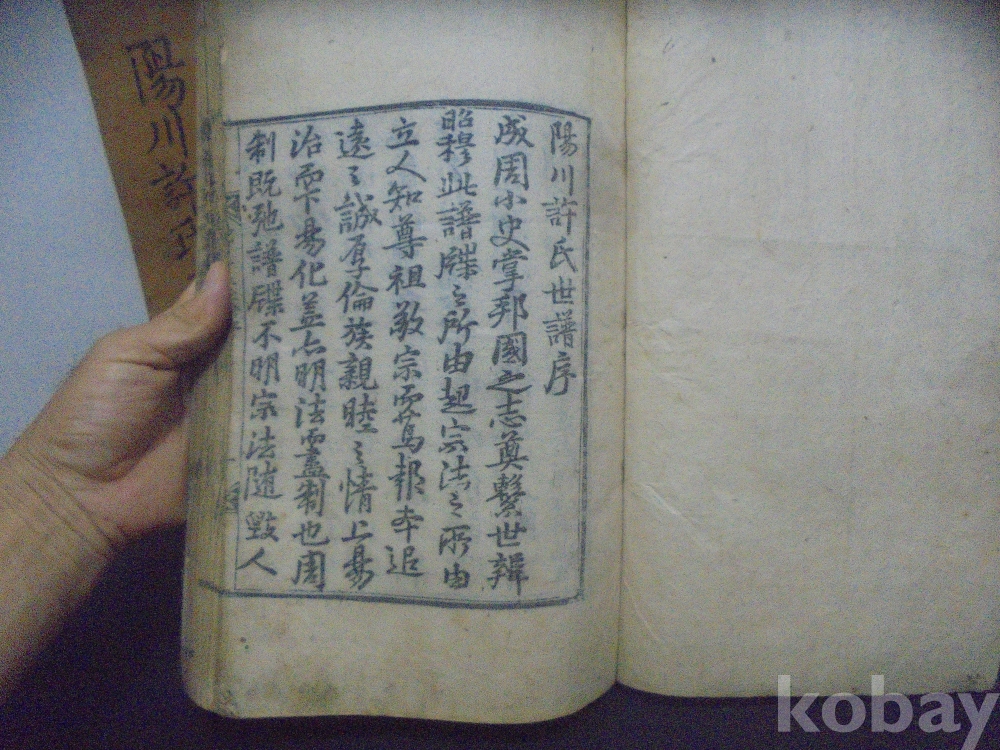 陽川許氏世譜序
成周小史掌邦國之志奠繫世辨
昭穆此譜牒之所由起宗法之所由
立人知尊祖敬宗而篤邦本追
遠之誠厚倫族親睦之情上易
治而下易化盖亦明法之制也周
制旣弛譜牒不明宗法隨毀人
陽川許氏
kobay